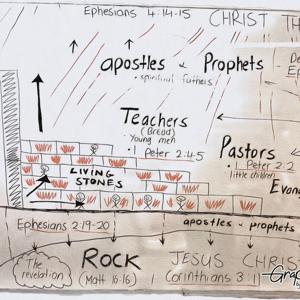 Ephesians 4:14-15
CHRIST TH
apostles & Prophets
• spiritual fathers
De
Ep
Teachers
(Bread)
Young men
1 Peter 2:4-5
Pastors
1 Peter 2:2
little children
Evang
LIVING
STONES
Ephesians 2:19-20
apostles & prophets
The
revelation
ROCK
(Matt 16:16)
JESUS CHRIS
1 Corinthians 3:1
Grap